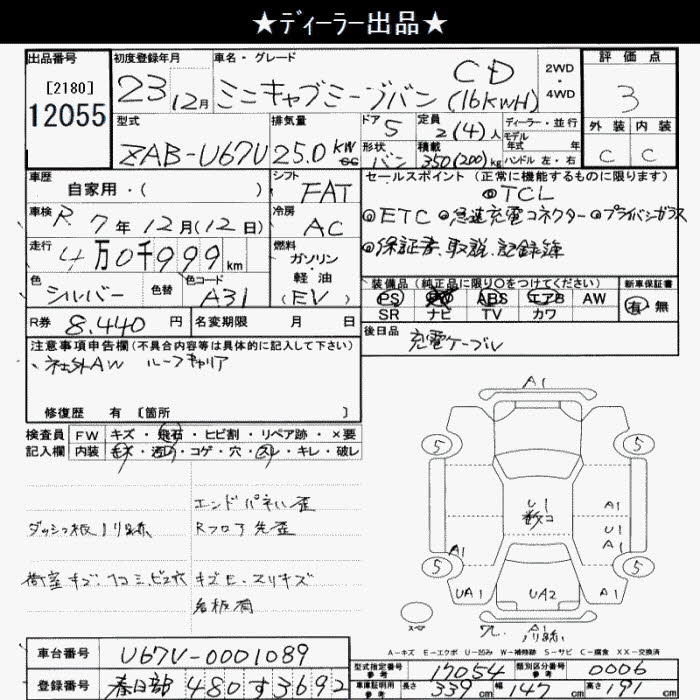 ★ディーラー出品★
出品番号 初度登録年月 車名・グレード 評価点
[2180] 23 12月 ミニキャブミーブバン CD (16KWH) 2WD・4WD 3
12055
外装 内装
型式 排気量 ドア 定員 ディーラー・並行
ZAB-U67V 25.0 KW 5 2(4)人 モデル年式 年式 C C
形状 積載 ハンドル 左・右
バン 350(200)kg
車歴 シフト セールスポイント(正常に機能するものに限ります)
自家用・( ) FAT ◎TCL
車検 R 7年12月(12日) 冷房 AC ◎ETC ◎急速充電コネクター ◎プライバシーガラス
走行 4万0千999km 燃料 ガソリン・軽油(EV) ◎保証書、取説、記録簿
色 色替 色コード 装備品(純正品に限り○をつけてください) 新車保証書
シルバー A31 PS PW ABS エアB AW 有・無
SR ナビ TV カワ
R券 8,440円 名変期限 月 日 後日品 充電ケーブル
注意事項申告欄(不具合内容等は具体的に記入して下さい)
・社外AW ルーフキャリア
修復歴 有 [箇所 ]
検査員 FW キズ・飛石・ヒビ割・リペア跡・×要
記入欄 内装 キズ・汚れ・コゲ・穴・スレ・キレ・破レ
エンドパネル歪
ダッシュ板ノリ跡 Rフロア先歪
荷室キズ・凹コミ・ビス穴 キズ
名板有
A1
5 5
U1 A1
U1
A1 A1
5 5
UA1 UA2 A1
スペア A1
ノリ跡
A-キズ E-エクボ U-凹み W-補修跡 S-サビ C-腐食 XX-交換済
車台番号 U67V-0001089 型式指定番号 参考 17054 類別区分番号 参考 0006
登録番号 春日部 480 す 3692 車庫証明用 参考 長さ 339cm 幅 147cm 高さ 191cm